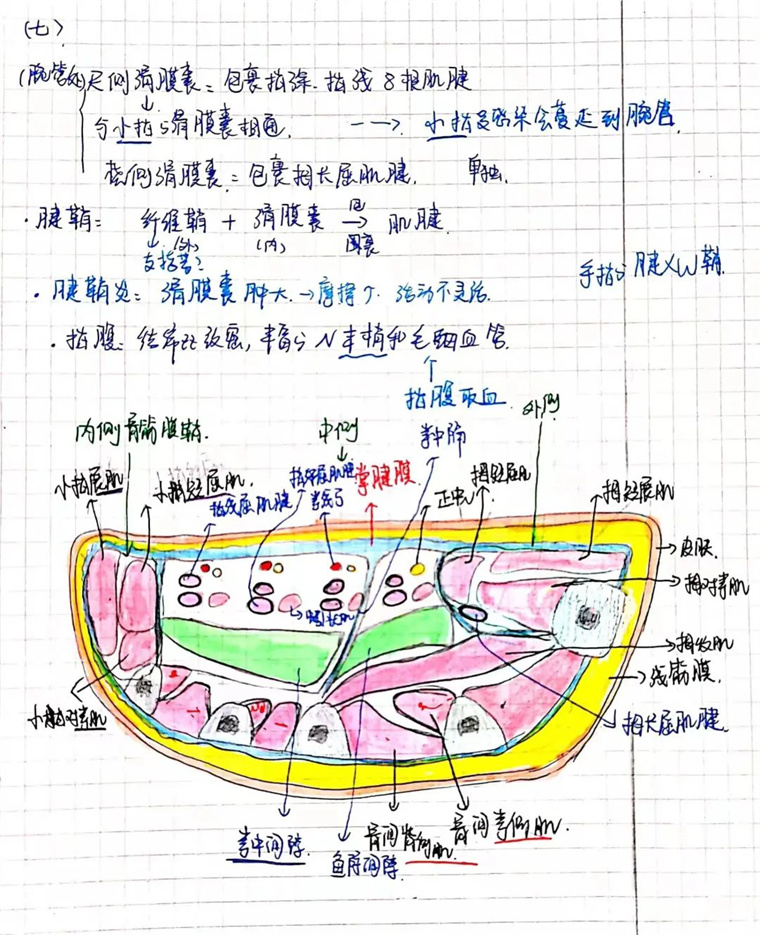 (七)
(腕管处) 尺侧滑膜囊: 包裹指深.指浅8根肌腱
与小指的滑膜囊相通. ---> 小指受感染会蔓延到腕管.
桡侧滑膜囊: 包裹拇长屈肌腱. 单独.
· 腱鞘: 纤维鞘 + 滑膜囊 → 肌腱.
(外) (内) 包裹
手指的腱
· 腱鞘炎: 滑膜囊肿大.→摩擦个. 活动不灵活.
· 指腹: 结缔 致密, 丰富的N末梢和毛细血管.
↑
指腹取血
外侧
内侧骨筋膜鞘.
中间
掌中隔
小指展肌
小指短屈肌
指浅屈肌腱
掌腱膜
正中N
拇短屈肌
拇短展肌
→皮肤.
→拇对掌肌
→拇收肌
→浅筋膜.
小指对掌肌
→拇长屈肌腱.
掌中间隙.
鱼际间隙.
骨间背侧肌.
骨间掌侧肌.